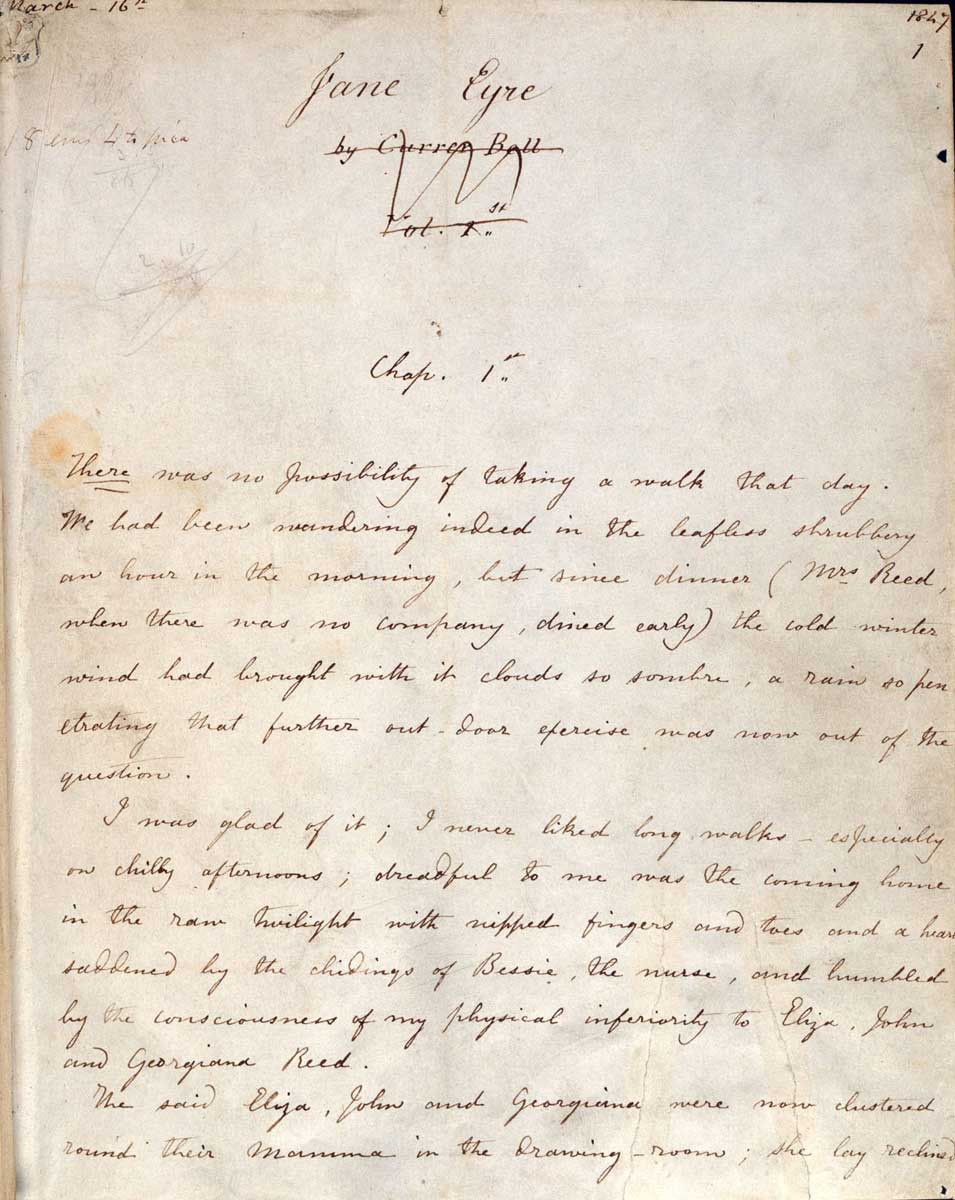 March - 16th
1847
1
Jane Eyre
by Currer Bell
Vol. 1st
Chap. 1st
There was no possibility of taking a walk that day.
We had been wandering indeed in the leafless shrubbery
an hour in the morning, but since dinner (Mrs Reed,
when there was no company, dined early) the cold winter
wind had brought with it clouds so sombre, a rain so pen
etrating that further out-door exercise was now out of the
question.
I was glad of it; I never liked long walks - especially
on chilly afternoons; dreadful to me was the coming home
in the raw twilight with nipped fingers and toes and a heart
saddened by the chidings of Bessie, the nurse, and humbled
by the consciousness of my physical inferiority to Eliza, John
and Georgiana Reed.
The said Eliza, John and Georgiana were now clustered
round their Mamma in the drawing-room; she lay reclined